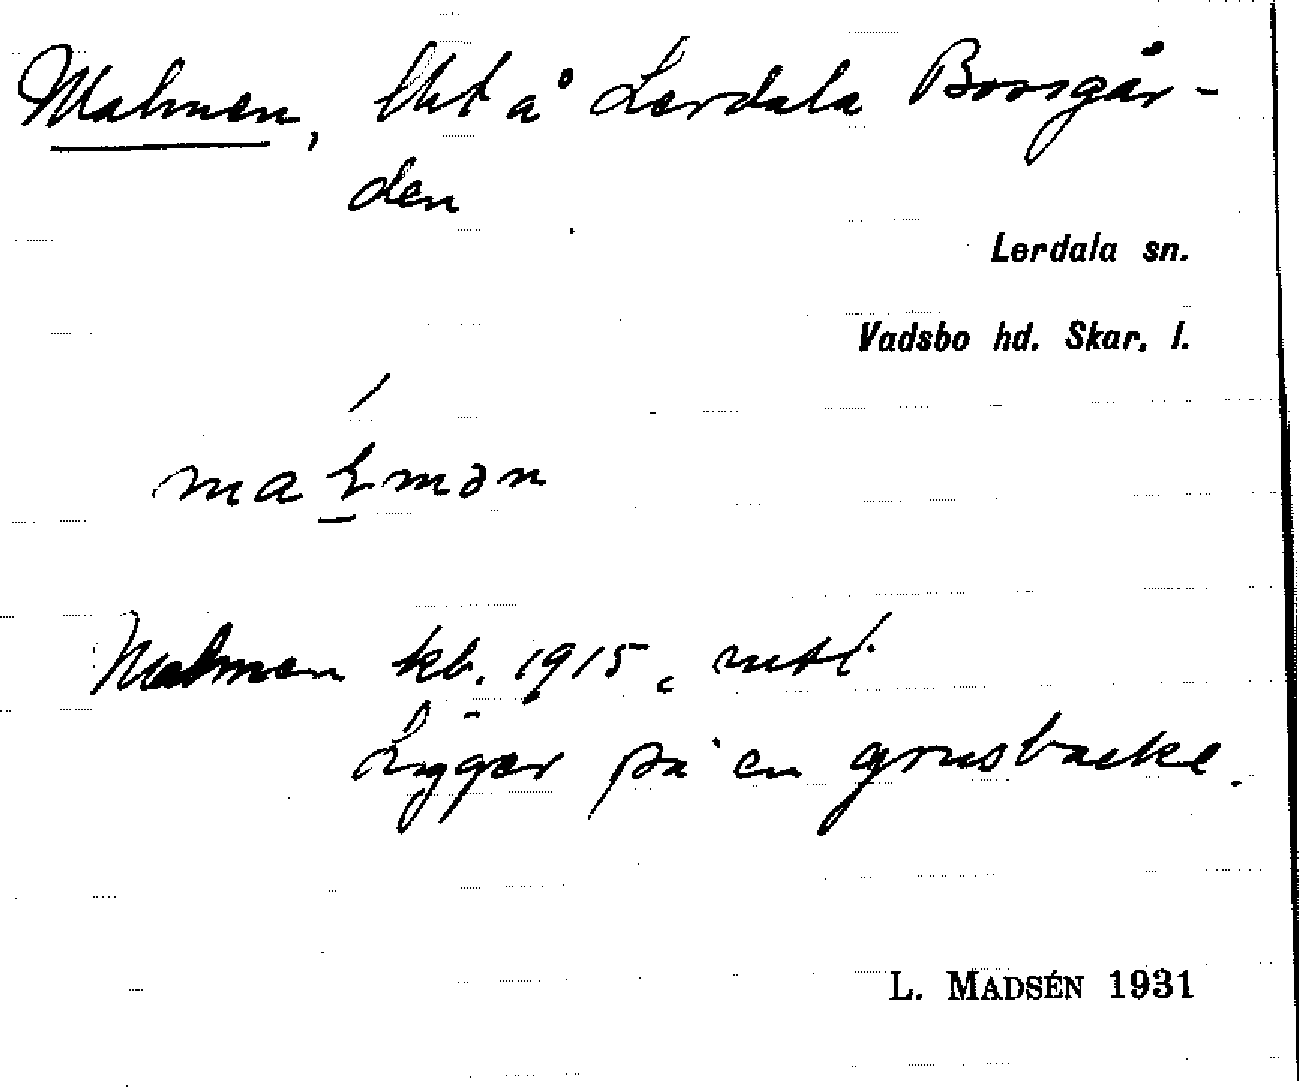 Malmen, lht å Lerdala Bossgår-
den
Lerdala sn.
Vadsbo hd. Skar. l.
Malmen kb. 1915,
Ligger på en grusbacke.
L. MADSÉN 1931